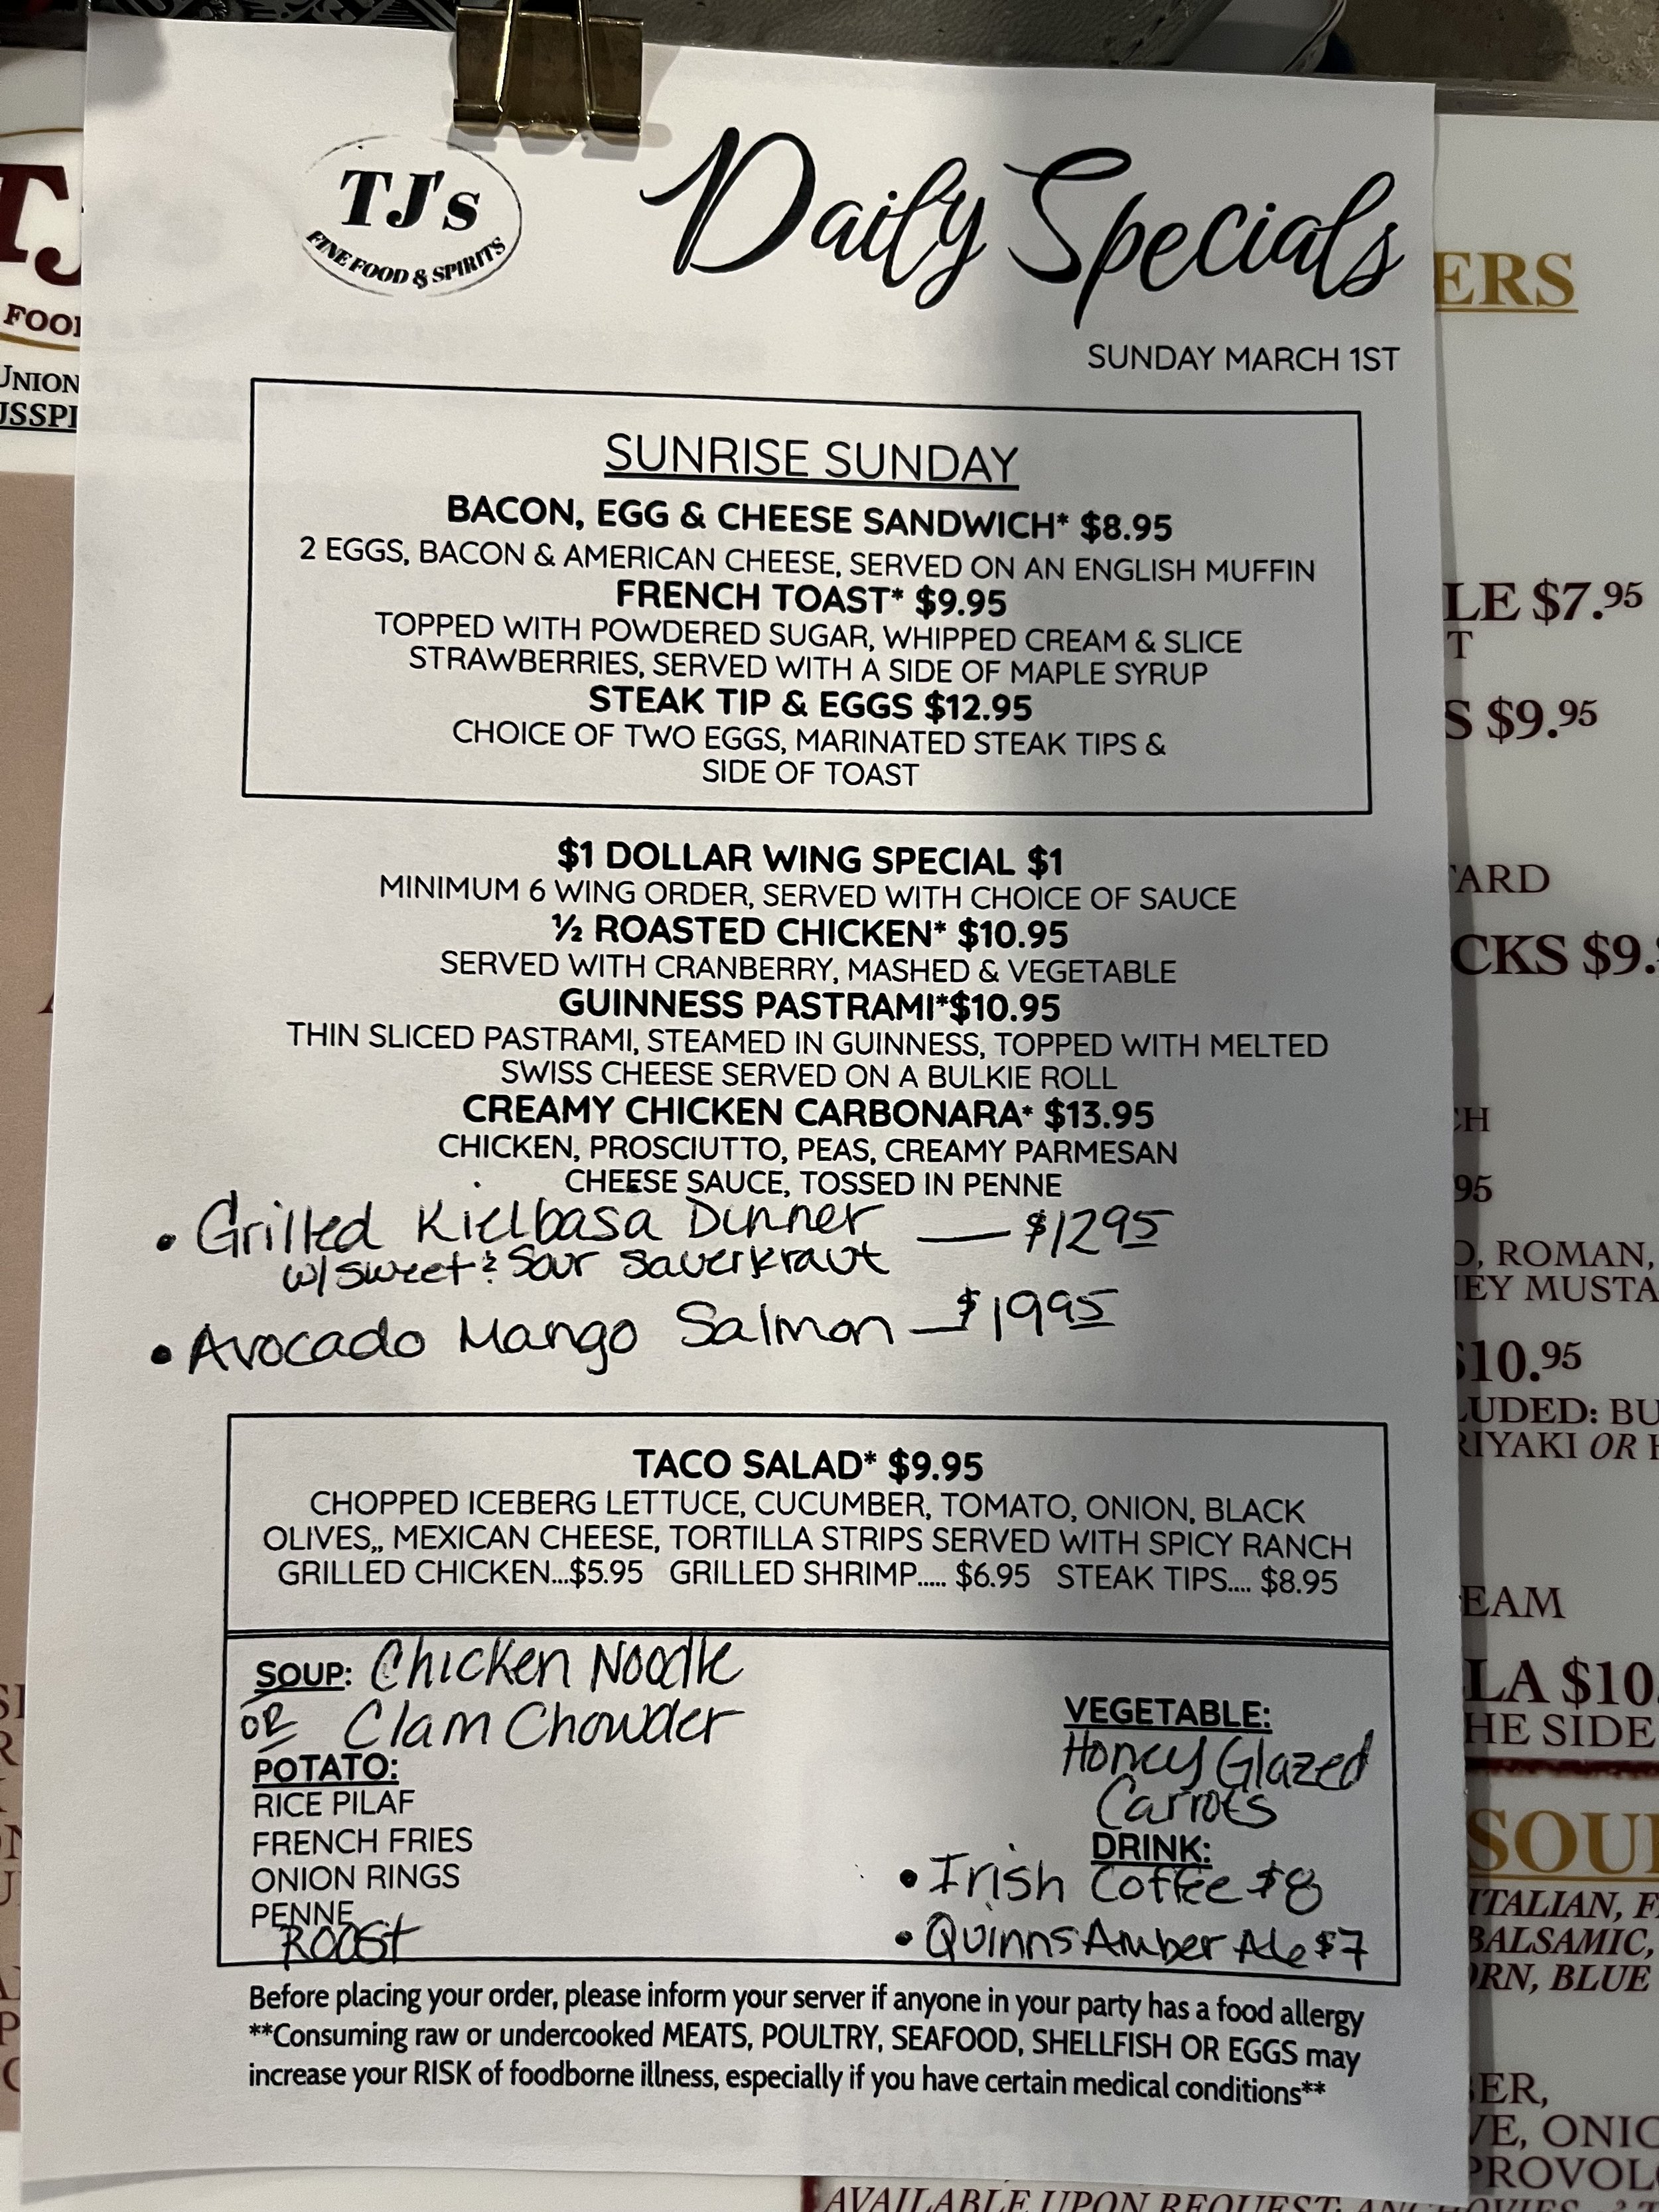 TJ's
FINE FOOD & SPIRITS
Daily Specials
SUNDAY MARCH 1ST
SUNRISE SUNDAY
BACON, EGG & CHEESE SANDWICH* $8.95
2 EGGS, BACON & AMERICAN CHEESE, SERVED ON AN ENGLISH MUFFIN
FRENCH TOAST* $9.95
TOPPED WITH POWDERED SUGAR, WHIPPED CREAM & SLICE
STRAWBERRIES, SERVED WITH A SIDE OF MAPLE SYRUP
STEAK TIP & EGGS $12.95
CHOICE OF TWO EGGS, MARINATED STEAK TIPS &
SIDE OF TOAST
$1 DOLLAR WING SPECIAL $1
MINIMUM 6 WING ORDER, SERVED WITH CHOICE OF SAUCE
½ ROASTED CHICKEN* $10.95
SERVED WITH CRANBERRY, MASHED & VEGETABLE
GUINNESS PASTRAMI*$10.95
THIN SLICED PASTRAMI, STEAMED IN GUINNESS, TOPPED WITH MELTED
SWISS CHEESE SERVED ON A BULKIE ROLL
CREAMY CHICKEN CARBONARA* $13.95
CHICKEN, PROSCIUTTO, PEAS, CREAMY PARMESAN
CHEESE SAUCE, TOSSED IN PENNE
• Grilled Kielbasa Dinner — $1295
w/ Sweet & Sour Sauerkraut
• Avocado Mango Salmon — $1995
TACO SALAD* $9.95
CHOPPED ICEBERG LETTUCE, CUCUMBER, TOMATO, ONION, BLACK
OLIVES,, MEXICAN CHEESE, TORTILLA STRIPS SERVED WITH SPICY RANCH
GRILLED CHICKEN...$5.95 GRILLED SHRIMP..... $6.95 STEAK TIPS.... $8.95
SOUP: Chicken Noodle
OR Clam Chowder
POTATO:
RICE PILAF
FRENCH FRIES
ONION RINGS
PENNE
ROAST
VEGETABLE:
Honey Glazed
Carrots
DRINK:
• Irish Coffee $8
• Quinns Amber Ale $7
Before placing your order, please inform your server if anyone in your party has a food allergy
**Consuming raw or undercooked MEATS, POULTRY, SEAFOOD, SHELLFISH OR EGGS may
increase your RISK of foodborne illness, especially if you have certain medical conditions**
FOOD
UNION
ERS
LE $7.95
T
S $9.95
ARD
CKS $9.
CH
95
O, ROMAN,
EY MUSTA
$10.95
LUDED: BU
RIYAKI OR
EAM
LA $10.
HE SIDE
SOU
ITALIAN, F
BALSAMIC,
ORN, BLUE
BER,
VE, ONIO
PROVOL
AVAILABLE UPON REQUEST: ANCHOVIES